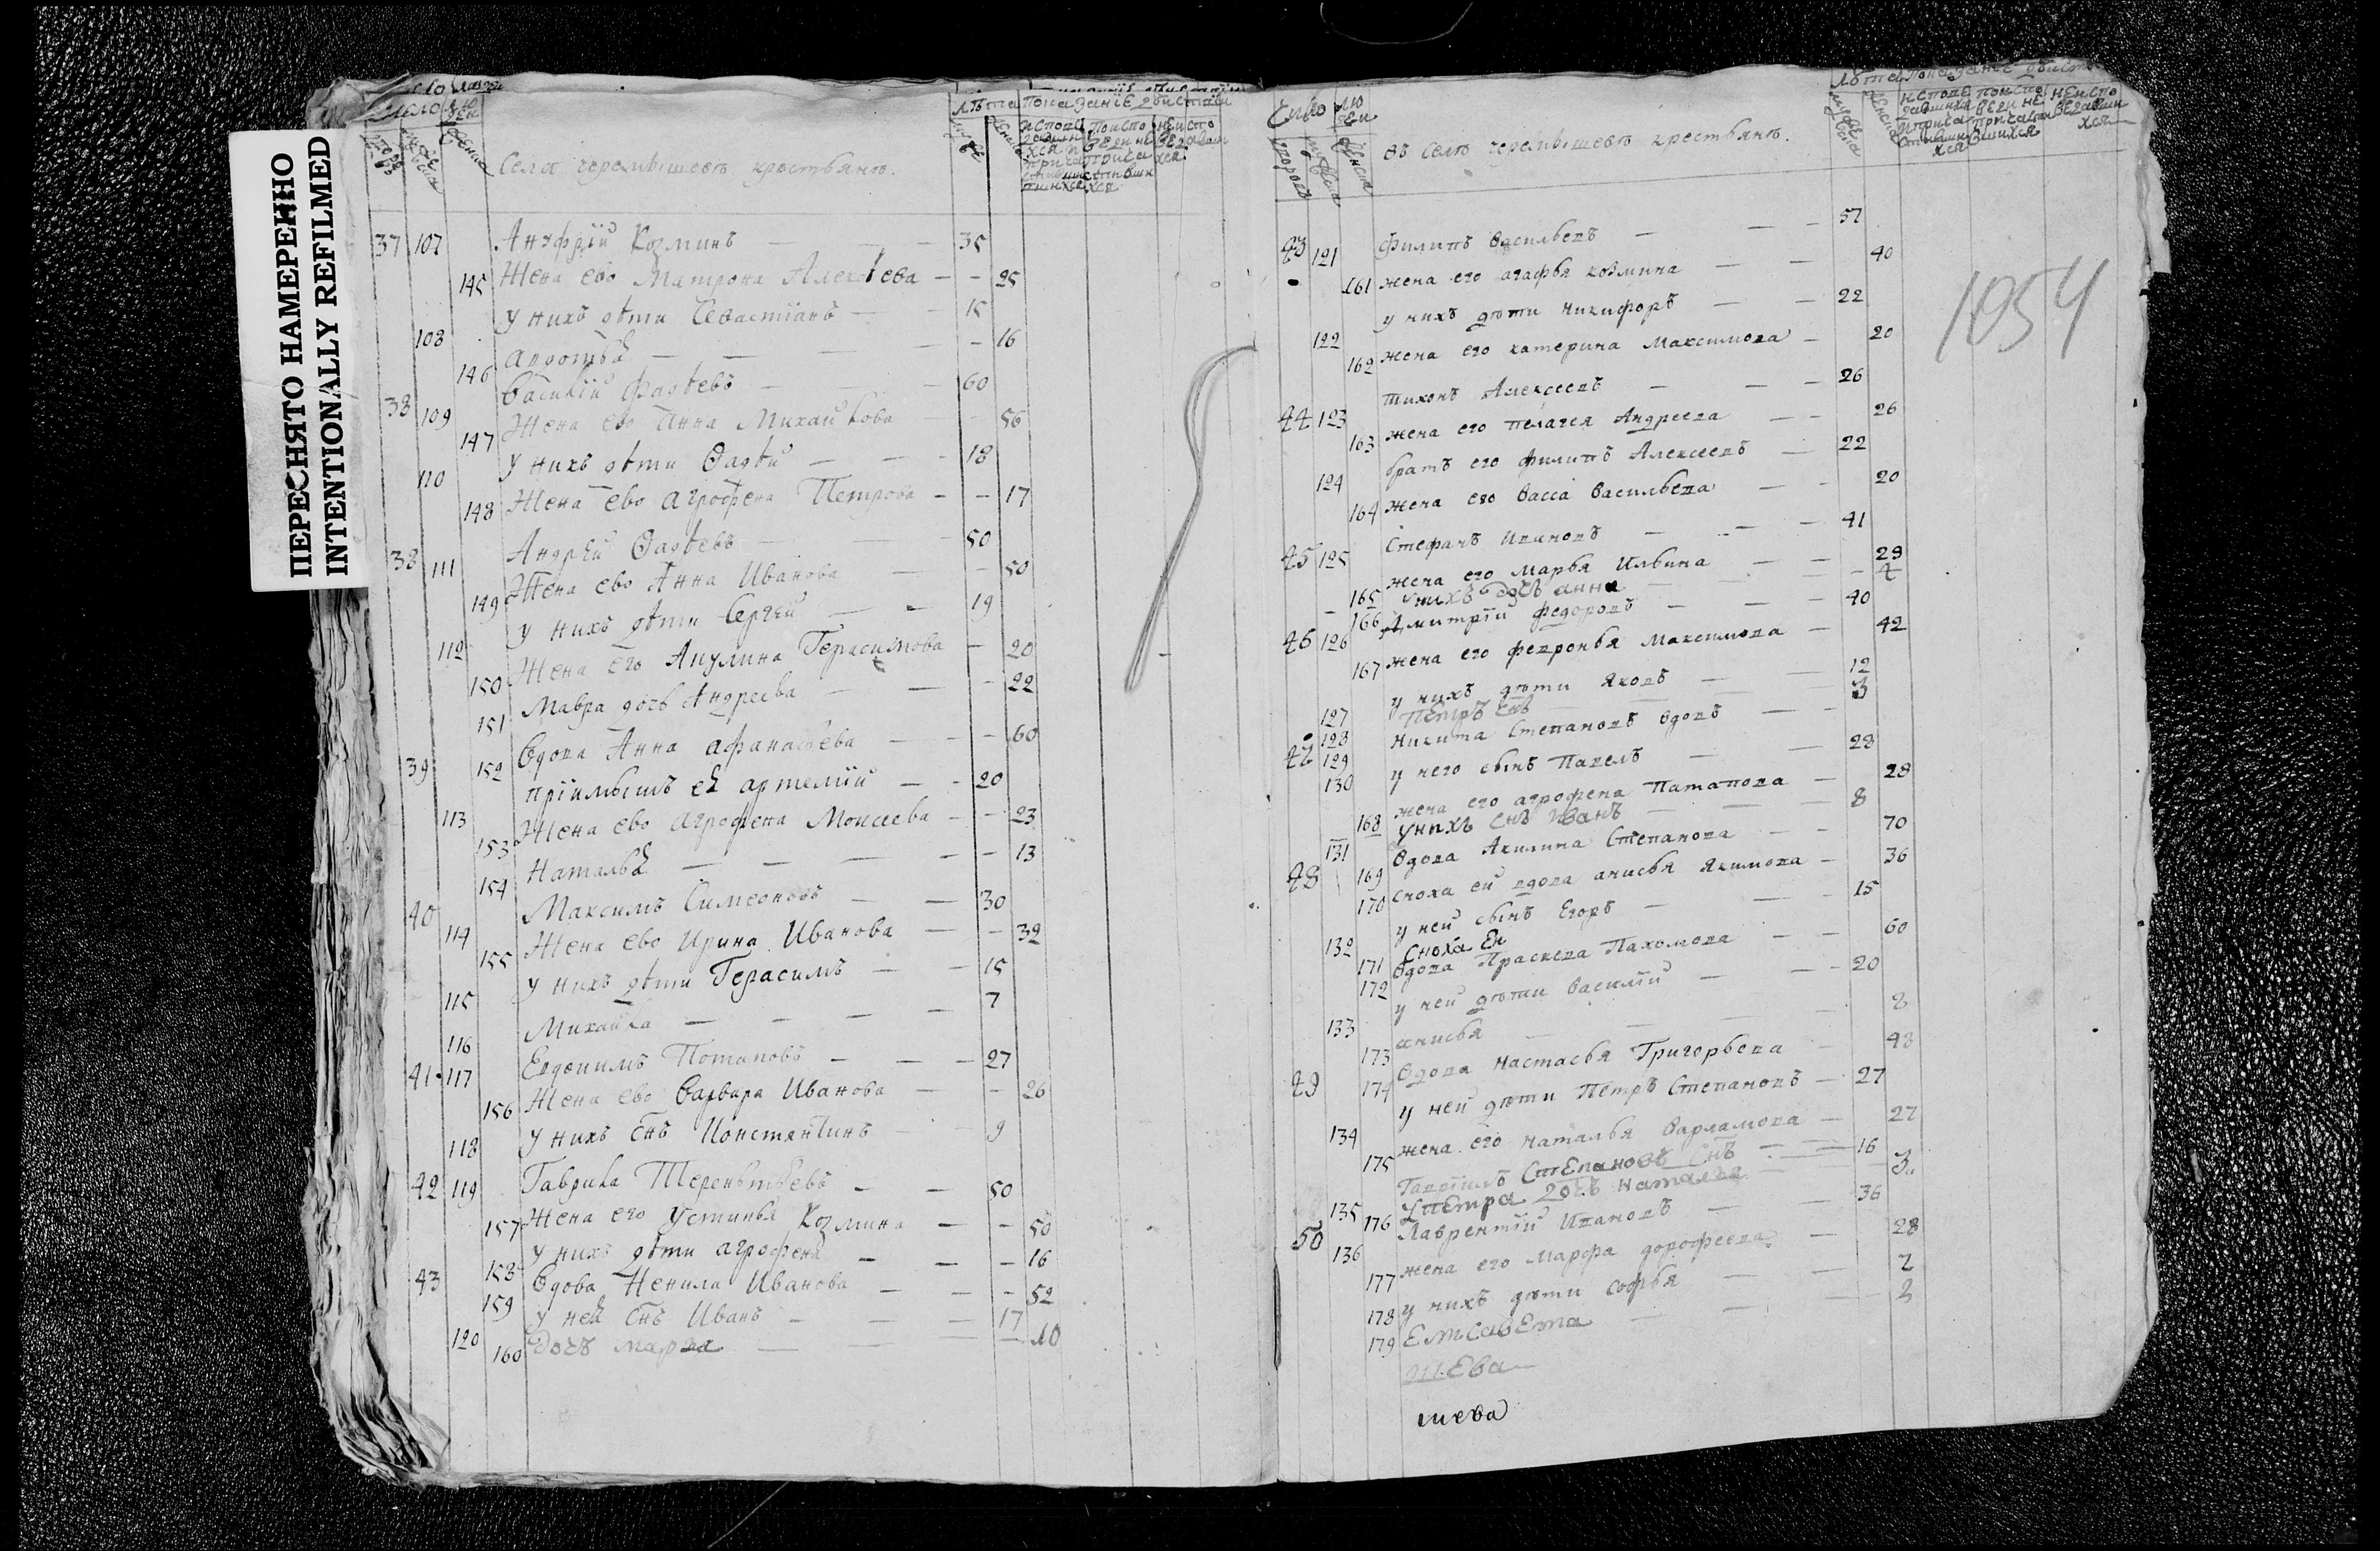 ПЕРЕСНЯТО НАМЕРЕННО
INTENTIONALLY REFILMED
Число людей
дворовъ
мужеска
женска
Села черемышевъ крестьянъ.
лѣта
показанїе дѣйствїи
37 107 Ануфрїй Козминъ — 35
145 Жена ево Матрона Алексѣева — 25
108 у нихъ дѣти Севастїанъ — 15
146 — 16
38 109 Василїй Фадѣевъ — 60
147 Жена ево Анна Михайлова 56
110 у нихъ дѣти Ѳадѣй — 18
148 Жена ево агрофена Петрова — 17
38 111 Андрей Ѳадѣевъ — 50
149 Жена ево Анна Иванова — 50
112 у нихъ дѣти Сергей — 19
150 Жена его Акулина Герасимова — 20
151 Мавра дочь Андреева — 22
39 152 Вдова Анна афанасьева — 60
113 прїимышъ еѧ артемїй — 20
153 Жена ево агрофена Моисеева — 23
154 Натальѧ — 13
40 114 Максимъ Симеоновъ — 30
155 Жена ево Ирина Иванова — 32
115 у нихъ дѣти Герасимъ — 15
116 Михайла — 7
41 117 Евдокимъ Потаповъ — 27
156 Жена ево Варвара Иванова — 26
118 у нихъ снъ Констянтинъ — 9
42 119 Гаврила Терентьѣевъ — 50
157 Жена его Устинья Козмина — 50
158 у нихъ дѣти агрофена — 16
43 159 Вдова Ненила Иванова — 52
120 у неѧ снъ Иванъ — 17
160 дочь марѳа — 10
Число людей
дворовъ
мужеска
женска
въ селѣ черемышевѣ крестьянъ.
лѣта
показанїе дѣйств
1054
43 121 Филипъ Васильевъ — 57
161 жена его агафья козмина — 40
122 у нихъ дѣти никифоръ — 22
162 жена его катерина Максимова — 20
44 123 тихонъ Алексеевъ — 26
163 жена его пелагея Андреева — 26
124 братъ его филипъ Алексеевъ — 22
164 жена его васса васильева — 20
45 125 Стефанъ Ивановъ — 41
165 жена его марья Ильина — 29
166 у нихъ дочь анна — 4
46 126 Дмитрїй федоровъ — 40
167 жена его февронья максимова — 42
127 у нихъ дѣти яковъ — 12
128 Петръ снъ — 3
47 129 никита Степановъ вдовъ —
130 у него сынъ Павелъ — 28
168 жена его агрофена Патапова — 28
131 у нихъ снъ иванъ — 8
48 169 Вдова Акилина Степанова — 70
170 сноха ей вдова анисья Якимова — 36
132 у ней сынъ Егоръ — 15
171 сноха Ей
172 Вдова Праскева Пахомова — 60
133 у ней дѣти василїй — 20
173 анисья — 8
49 174 Вдова настасья Григорьева — 48
134 у ней дѣти Петръ Степановъ — 27
175 жена его наталья Варламова — 27
135 Гаврїилъ Степановъ снъ — 16
176 у петра дочь наталья — 3
50 136 Лаврентїй Ивановъ — 36
177 жена его марфа дорофеева — 28
178 у нихъ дѣти софья — 7
179 Елисавета — 3
шева
шева